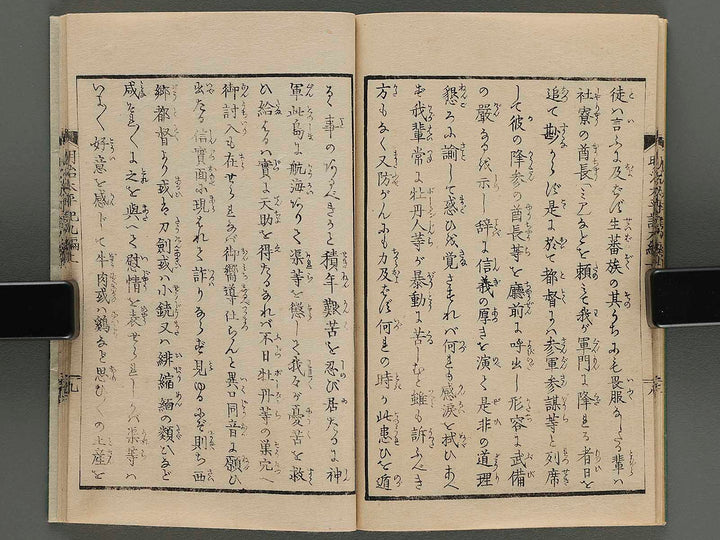 徒は言ふに及ばず生蕃族の其うちにも畏服なしたる輩は
社寮の酋長ミアなどを頼みて我が軍門に降する者日を
追て勘からず是に於て都督には参軍参謀等と列席
して彼の降参の酋長等を廳前に呼出し形容に武備
の嚴なるを示し辞に信義の厚きを演て是非の道理
懇ろに諭して惑ひを覚さすれば何れも感涙を拭ひあへ
も我輩常に牡丹人等が暴動に苦しむと雖も訴ふべき
方もなく又防がんにも力及ばず何れの時か此患ひを遁
るゝ事の
積年艱苦を忍び居たるに神
軍此島に航海ありて渠等を懲して我々が憂苦を救
ひ給はるは實に天助を得たるなれバ不日牡丹等の巣穴へ
御討入も在せられなバ御嚮導仕らんと異口同音に願ひ
出たる信實面に現はれて詐りあらず見ゆるにぞ則ち西
郷都督より或は刀剣或ハ小銃又ハ緋縮緬の類ひなど
咸々之を與へて慰情を表せられしかバ渠等ハ
好意を感じて牛肉或ハ鶏など思ひ〳〵の土産を
明治太平記九編
九